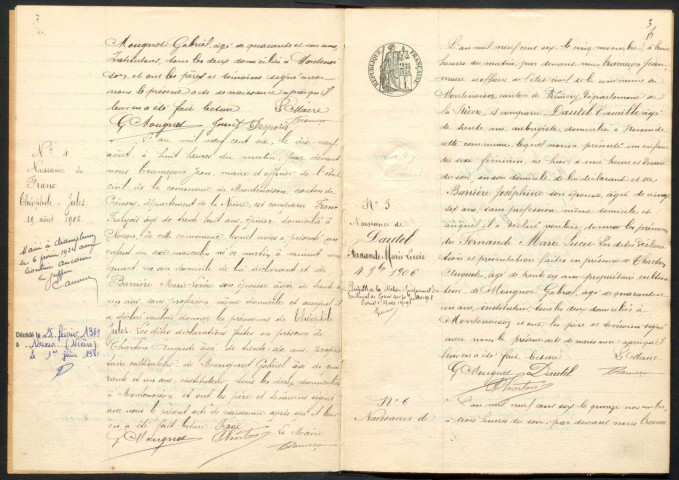 Mougnot Gabriel, âgé de quarante et un ans
Instituteur, tous les deux domiciliés à Montenoi
son, et ont les père et témoins signé avec
nous le présent acte de naissance après qu'il
leur en a été fait lecture. Le Maire
G Mougnot
N° 4
Naissance de
Franc
Théophile-Jules
19 août 1906.
Marié à
le 6 juin 1934 avec
Décédé le 25 février 1981
à (Nièvre)
le 1er juin 1981
L'an mil neuf cent six, le dix neuf
août à huit heures du matin, par devant
nous Crameçon Jean, maire et officier de l'état
civil de la commune de Montenoison canton de
Prémery, département de la Nièvre, est comparu Franc
François âgé de trente huit ans, domicilié à
Noison, de cette commune, lequel nous a présenté un
enfant du sexe masculin né ce matin, à minuit un
quart en son domicile de lui déclarant et de
Barrière Marie-Louise son épouse âgée de trente
un ans, sans profession même domicile et auquel il
a déclaré vouloir donner les prénoms de Théophile
Jules. Les dites déclarations faites en présence de
Charton Auguste âgé de trente six ans, proprié
taire cultivateur et de Mougnot Gabriel âgé de qua
rante et un ans, instituteur, tous les deux domiciliés
à Montenoison et ont les père et témoins signé
avec nous le présent acte de naissance après qu'il leur
en a été fait lecture. Franc
G Mougnot Charton Le Maire
3
RÉPUBLIQUE FRANÇAISE
N° 5
Naissance de
Dautel
Fernande Marie Lucie
4 9bre 1906
L'an mil neuf cent six, le cinq novembre, à huit
heures du matin, par devant nous Crameçon Jean,
maire et officier de l'état civil de la commune de
Montenoison, canton de Prémery, département de
la Nièvre, est comparu Dautel Camille âgé
de trente ans, aubergiste, domicilié à
cette commune, lequel nous a présenté un enfant
du sexe féminin, né hier à une heure et demie
du soir, en son domicile de lui déclarant et de
Barrière Joséphine son épouse, âgée de vingt
six ans, sans profession même domicile et
auquel il a déclaré vouloir donner les prénoms
de Fernande Marie Lucie. Les dites déclara
tion et présentation faites en présence de Charton
Auguste, âgé de trente six ans propriétaire cultiva
teur et de Mougnot Gabriel, âgé de quarante
un ans, instituteur, tous les deux domiciliés à
Montenoison et ont les père et témoins signé
avec nous le présent acte de naissance après qu'il
leur en a été fait lecture. Le Maire
G Mougnot Dautel
Charton
N° 6
Naissance de
L'an mil neuf cent six le quinze novembre,
à trois heures du soir, par devant nous Crame